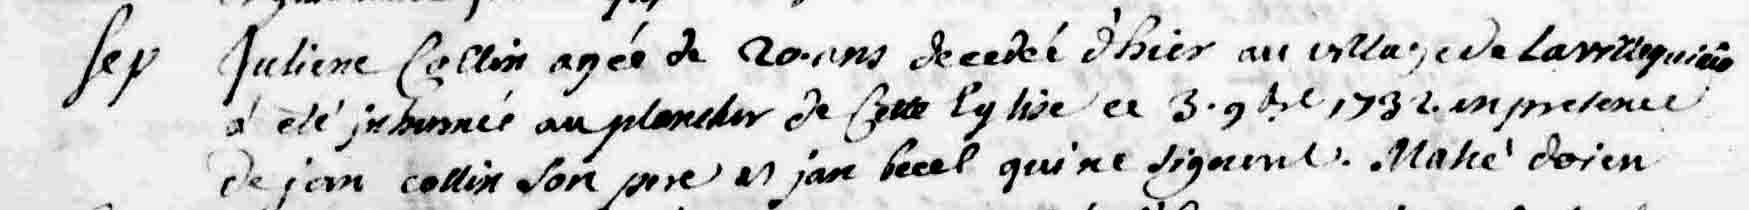 sep Juliene Collin agée de 20. ans decedeé d'hier au village de
á eté inhumeé au plancher de Cette Eglise ce 3. 9bre 1732. en presence
de jan collin son pere et jan becel qui ne signent. Mahé doien